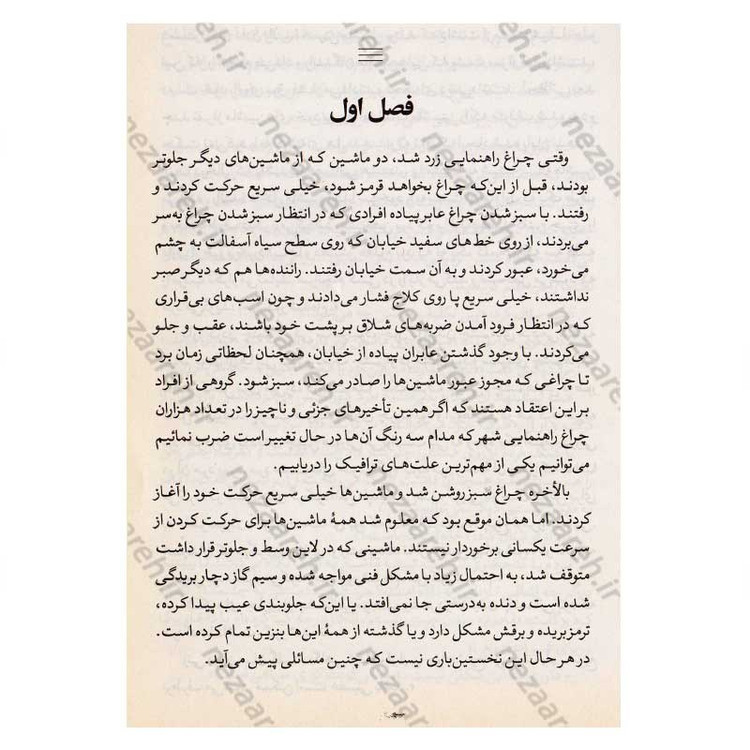 فصل اول
وقتی چراغ راهنمایی زرد شد، دو ماشین که از ماشین‌های دیگر جلوتر
بودند، قبل از این‌که چراغ بخواهد قرمز شود، خیلی سریع حرکت کردند و
رفتند. با سبز شدن چراغ عابر پیاده افرادی که در انتظار سبز شدن چراغ به‌سر
می‌بردند، از روی خط‌های سفید خیابان که روی سطح سیاه آسفالت به چشم
می‌خورد، عبور کردند و به آن سمت خیابان رفتند. راننده‌ها هم که دیگر صبر
نداشتند، خیلی سریع پا روی کلاج فشار می‌دادند و چون اسب‌های بی‌قراری
که در انتظار فرود آمدن ضربه‌های شلاق بر پشت خود باشند، عقب و جلو
می‌کردند. با وجود گذشتن عابران پیاده از خیابان، همچنان لحظاتی زمان برد
تا چراغی که مجوز عبور ماشین‌ها را صادر می‌کند، سبز شود. گروهی از افراد
بر این اعتقاد هستند که اگر همین تأخیرهای جزئی و ناچیز را در تعداد هزاران
چراغ راهنمایی شهر که مدام سه رنگ آن‌ها در حال تغییر است ضرب نمائیم
می‌توانیم یکی از مهم‌ترین علت‌های ترافیک را دریابیم.
بالأخره چراغ سبز روشن شد و ماشین‌ها خیلی سریع حرکت خود را آغاز
کردند. اما همان موقع بود که معلوم شد همهٔ ماشین‌ها برای حرکت کردن از
سرعت یکسانی برخوردار نیستند. ماشینی که در لاین وسط و جلوتر قرار داشت
متوقف شد، به احتمال زیاد با مشکل فنی مواجه شده و سیم گاز دچار بریدگی
شده است و دنده به‌درستی جا نمی‌افتد. یا این‌که جلوبندی عیب پیدا کرده،
ترمز بریده و برقش مشکل دارد و یا گذشته از همهٔ این‌ها بنزین تمام کرده است.
در هر حال این نخستین‌باری نیست که چنین مسائلی پیش می‌آید.
nezaareh.ir